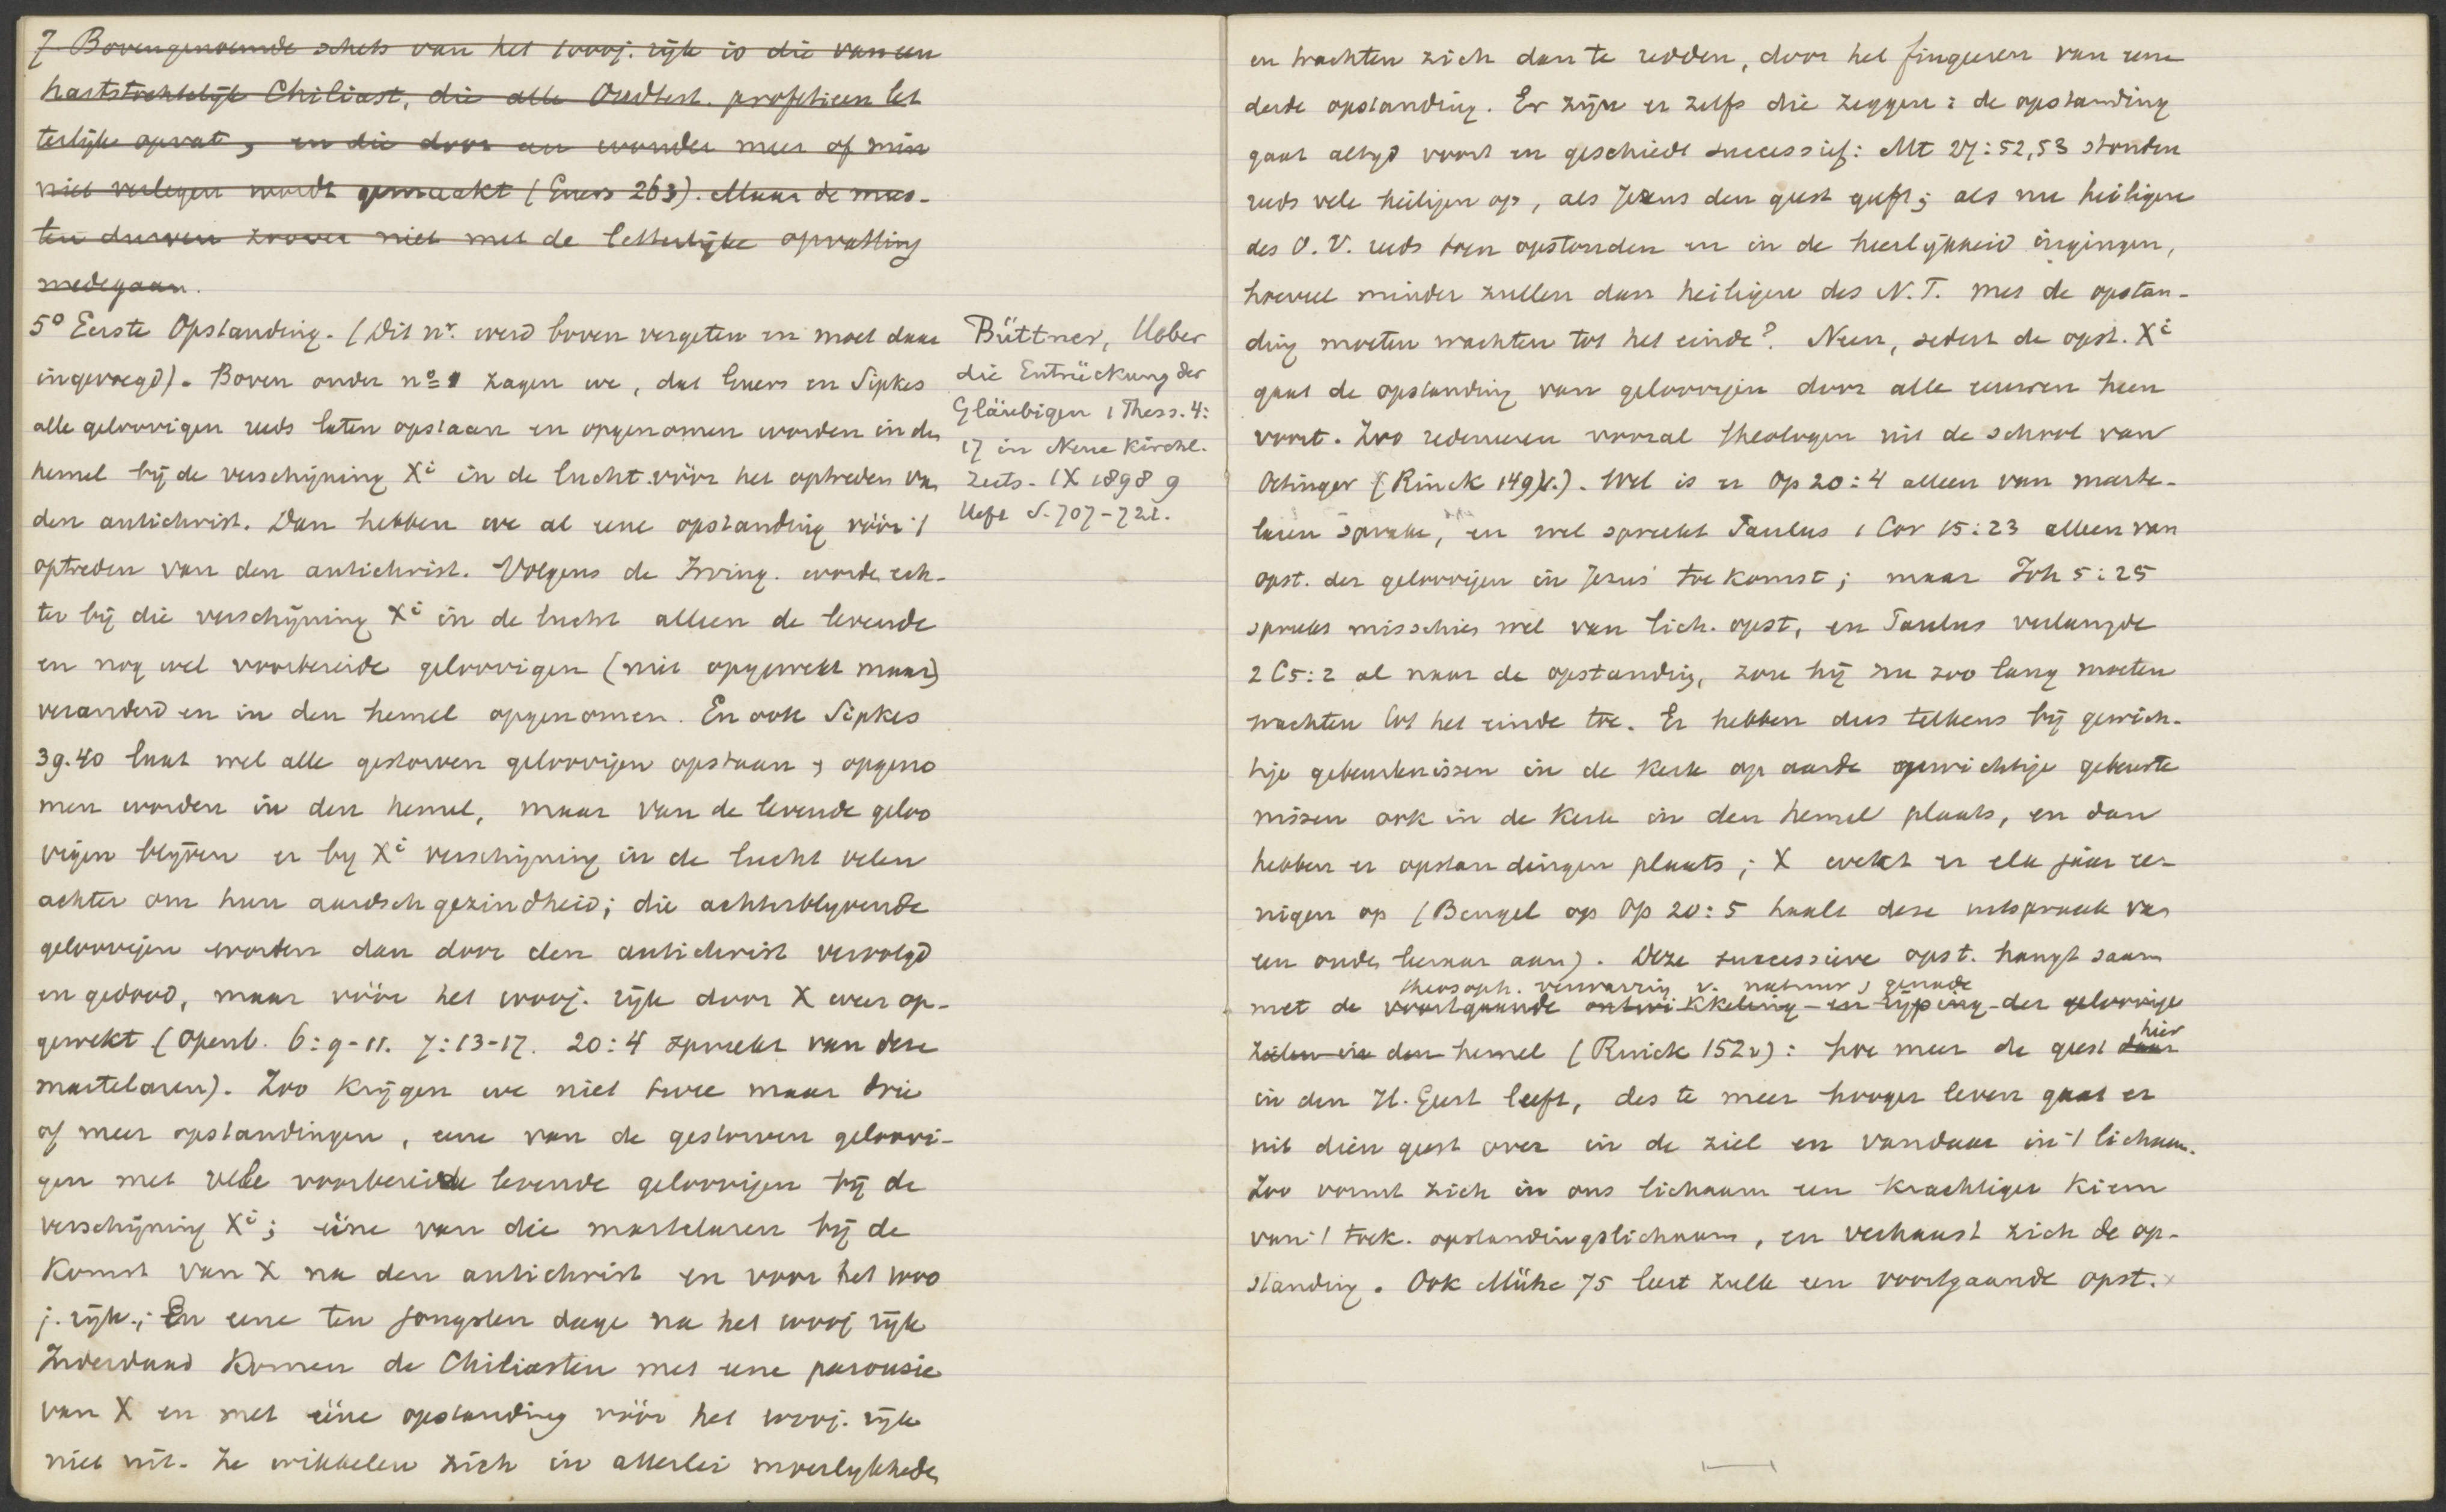 7 Bovengenoemde schets van het 1000j. rijk is die van een
hartstochtelijk Chiliast, die alle Oudtest. profetieen let
terlijk opvat, en die door een wonder meer of min
niet verlegen wordt gemaakt (Euers 263). Maar de mees-
ten durven zoover niet met de letterlijke opvatting
medegaan.
5° Eerste Opstanding. (Dit nr. werd boven vergeten en moet daar
ingevoegd). Boven onder no 1 zagen we, dat Euers en Sipkes
alle geloovigen reeds laten opstaan en opgenomen worden in den
hemel bij de verschijning Xi in de lucht vóór het optreden van
den antichrist. Dan hebben we al eene opstanding vóór 't
optreden van den antichrist. Volgens de Irving. worden ech-
ter bij die verschijning Xi in de lucht alleen de levende
en nog wel voorbereide geloovigen (niet opgewekt maar)
veranderd en in den hemel opgenomen. En ook Sipkes
39.40 laat wel alle gestorven geloovigen opstaan & opgeno
men worden in den hemel, maar van de levende geloo
vigen blijven er by Xi verschijning in de lucht velen
achter om hun aardschgezindheid; die achterblyvende
geloovigen worden dan door den antichrist vervolgd
en gedood, maar vóór het 1000j. rijk door X weer op-
gewekt (Openb. 6:9-11. 7:13-17. 20:4 spreekt van deze
martelaren). Zoo krijgen we niet twee maar drie
of meer opstandingen, eene van de gestorven geloovi-
gen met vele voorbereide levende geloovigen bij de
verschijning Xi; ééne van die martelaren bij de
komst van X na den antichrist en voor het 1000
j. rijk; En eene ten jongsten dage na het 1000j rijk
Inderdaad komen de Chiliasten met eene parousie
van X en met ééne opstanding vóór het 1000j. rijk
niet uit. Ze wikkelen zich in allerlei moeilykheden
Büttner, Ueber
die Entrückung der
Gläubigen 1 Thess. 4:
17 in Neue Kirchl.
Zeits. IX 1898 9
Heft S. 707-721.
en trachten zich dan te redden, door het fingeeren van eene
derde opstanding. Er zijn er zelfs die zeggen: de opstanding
gaat altijd voort en geschiedt successief: Mt 27:52,53 stonden
reeds vele heiligen op, als Jezus den geest geeft; als nu heiligen
des O.V. reeds toen opstonden en in de heerlijkheid ingingen,
hoeveel minder zullen dan heiligen des N.T. met de opstan-
ding moeten wachten tot het einde? Neen, sedert de opst. Xi
gaat de opstanding van geloovigen door alle eeuwen heen
voort. Zoo redeneeren vooral theologen uit de school van
Oetinger (Rinck 149)v.). Wel is er Op 20:4 alleen van marte-
laren sprake, en wel spreekt Paulus 1 Cor 15:23 alleen van
opst. der geloovigen in Jezus' toekomst; maar Joh 5:25
spreekt misschien wel van lich. opst, en Paulus verlangde
2 C5:2 al naar de opstanding, zou hij nu zoo lang moeten
wachten tot het einde toe. Er hebben dus telkens bij gewich-
tige gebeurtenissen in de kerk op aarde gewichtige gebeurte
nissen ook in de kerk in den hemel plaats, en dan
hebben er opstandingen plaats; X wekt er elk jaar ee-
nigen op (Bengel op Op 20:5 haalt deze uitspraak van
een ouden leeraar aan). Deze successieve opst. hangt saam
theosoph. verwarring v. natuur & genade
met de voortgaande ontwikkeling en rijping der geloovige
zielen in den hemel (Rinck 152v): hoe meer de geest daar hier
in den H. Geest leeft, des te meer hooger leven gaat er
uit dien geest over in de ziel en vandaar in 't lichaam.
Zoo vormt zich in ons lichaam een krachtiger kiem
van 't toek. opstandingslichaam, en verhaast zich de op-
standing. Ook Mühe 75 leert zulk een voortgaande opst.